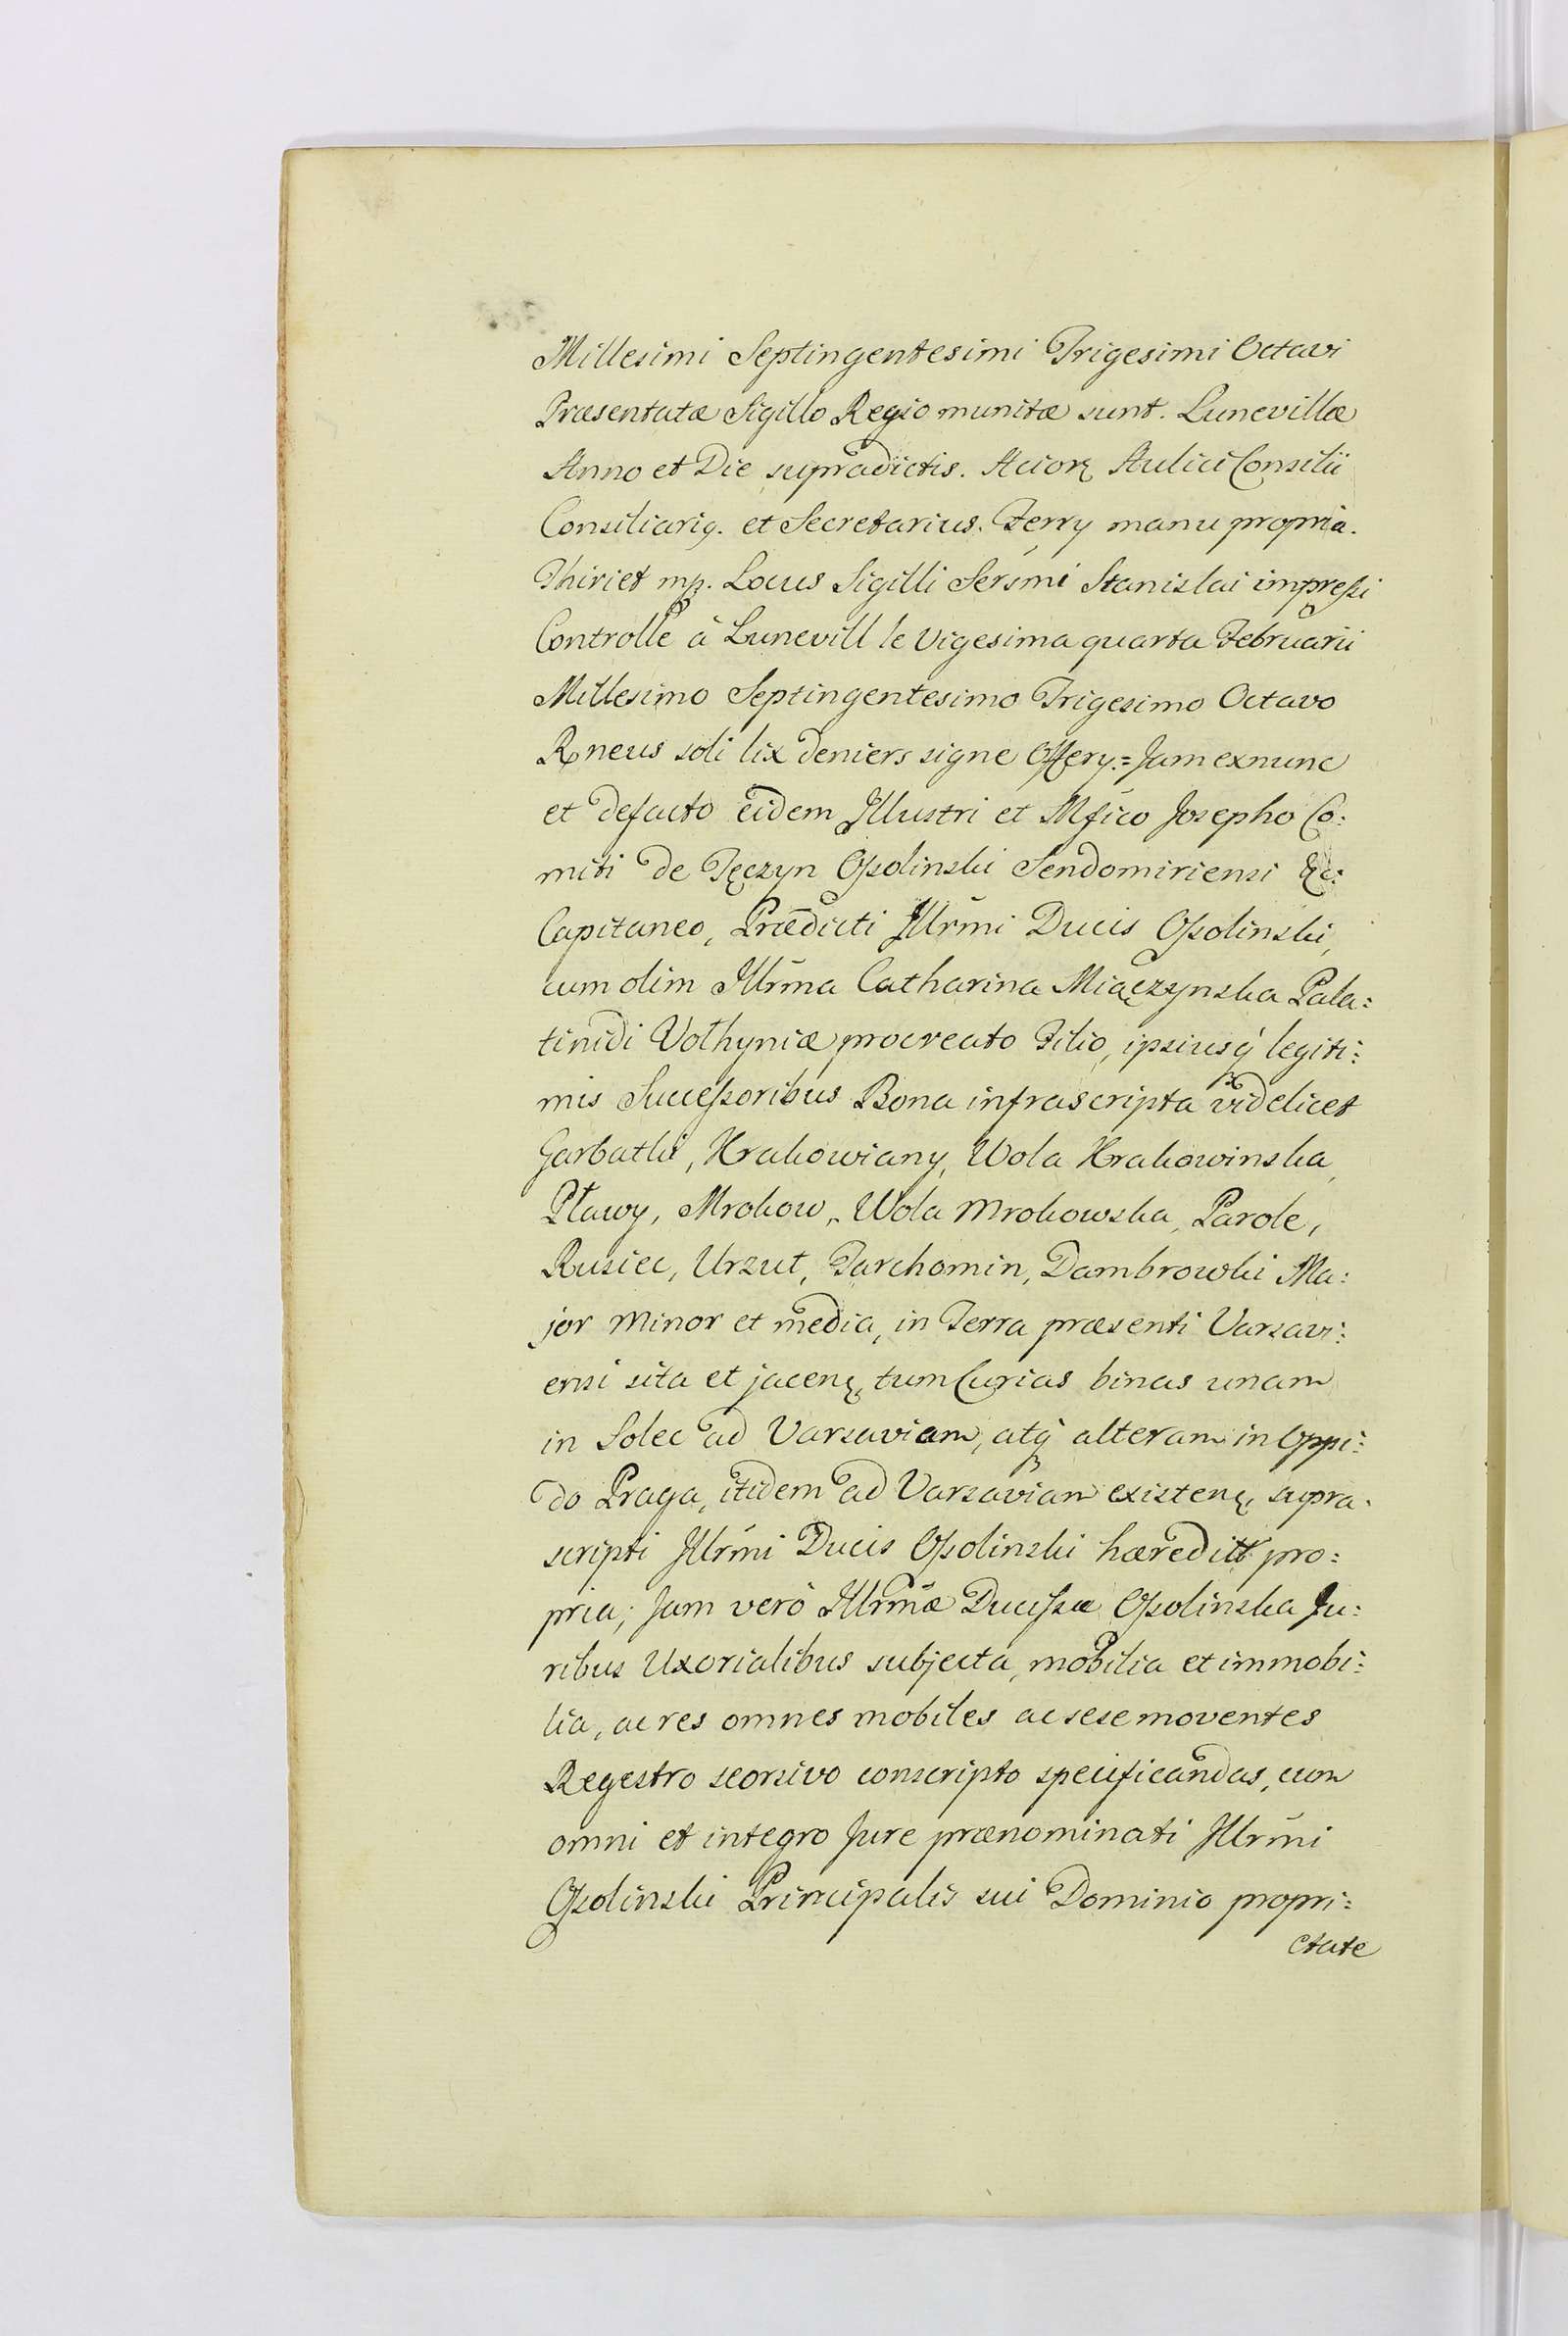 Millesimi Septingentesimi Trigesimi Octavi
Præsentatæ Sigillo Regio munitæ sunt. Lunevillæ
Anno et Die supradictis. Aulici Consilii
Consiliariq. et Secretarius. Ferry manu propria.
Thiriet mp. Locus Sigilli Serśmi Stanislai impreſsi
Controlle á Lunevill le vigesima quarta Februarii
Millesimo Septingentesimo Trigesimo Octavo
soli lix deniers signe Offery.= Jam exnunc
et defacto eidem Jllustri et Mfico Josepho Co:
miti de Tęczyn Oſsolinski Sendomiriensi &c:
Capitaneo, Prædicti Jllrm̃i Ducis Oſsolinski,
cum olim Jllrm̃a Catharina Miączynska Pala:
tinidi Vołhyniæ procreato Filio, ipsiusq́ legiti:
mis Succeſsoribus Bona infrascripta videlicet
Garbatki, Krakowiany, Wola Krakowinska,
Pławy, Mrokow, Wola Mrokowska, Parole,
Rusiec, Urzut, Tarchomin, Dambrowki Ma:
jor Minor et media, in Terra præsenti Varsavi:
ensi sita et jaceną, tum Curias binas unam
in Solec ad Varsaviam, atq́ alteram in Oppi:
do Praga, itidem ad Varsaviam existenę, supra.
scripti Jllrm̃i Ducis Oſsolinski hæreditt pro:
pria; Jam verò Jllrm̃æ Duciſsæ Oſsolinska Ju:
ribus Uxorialibus subjecta, mobilia et immobi:
lia, ac res omnes mobiles ac sese moventes
Regestro seorsivo conscripto specificandas, cum
omni et integro Jure prænominati Jllrm̃i
Oſsolinski Principalis sui Dominio propri:
etate